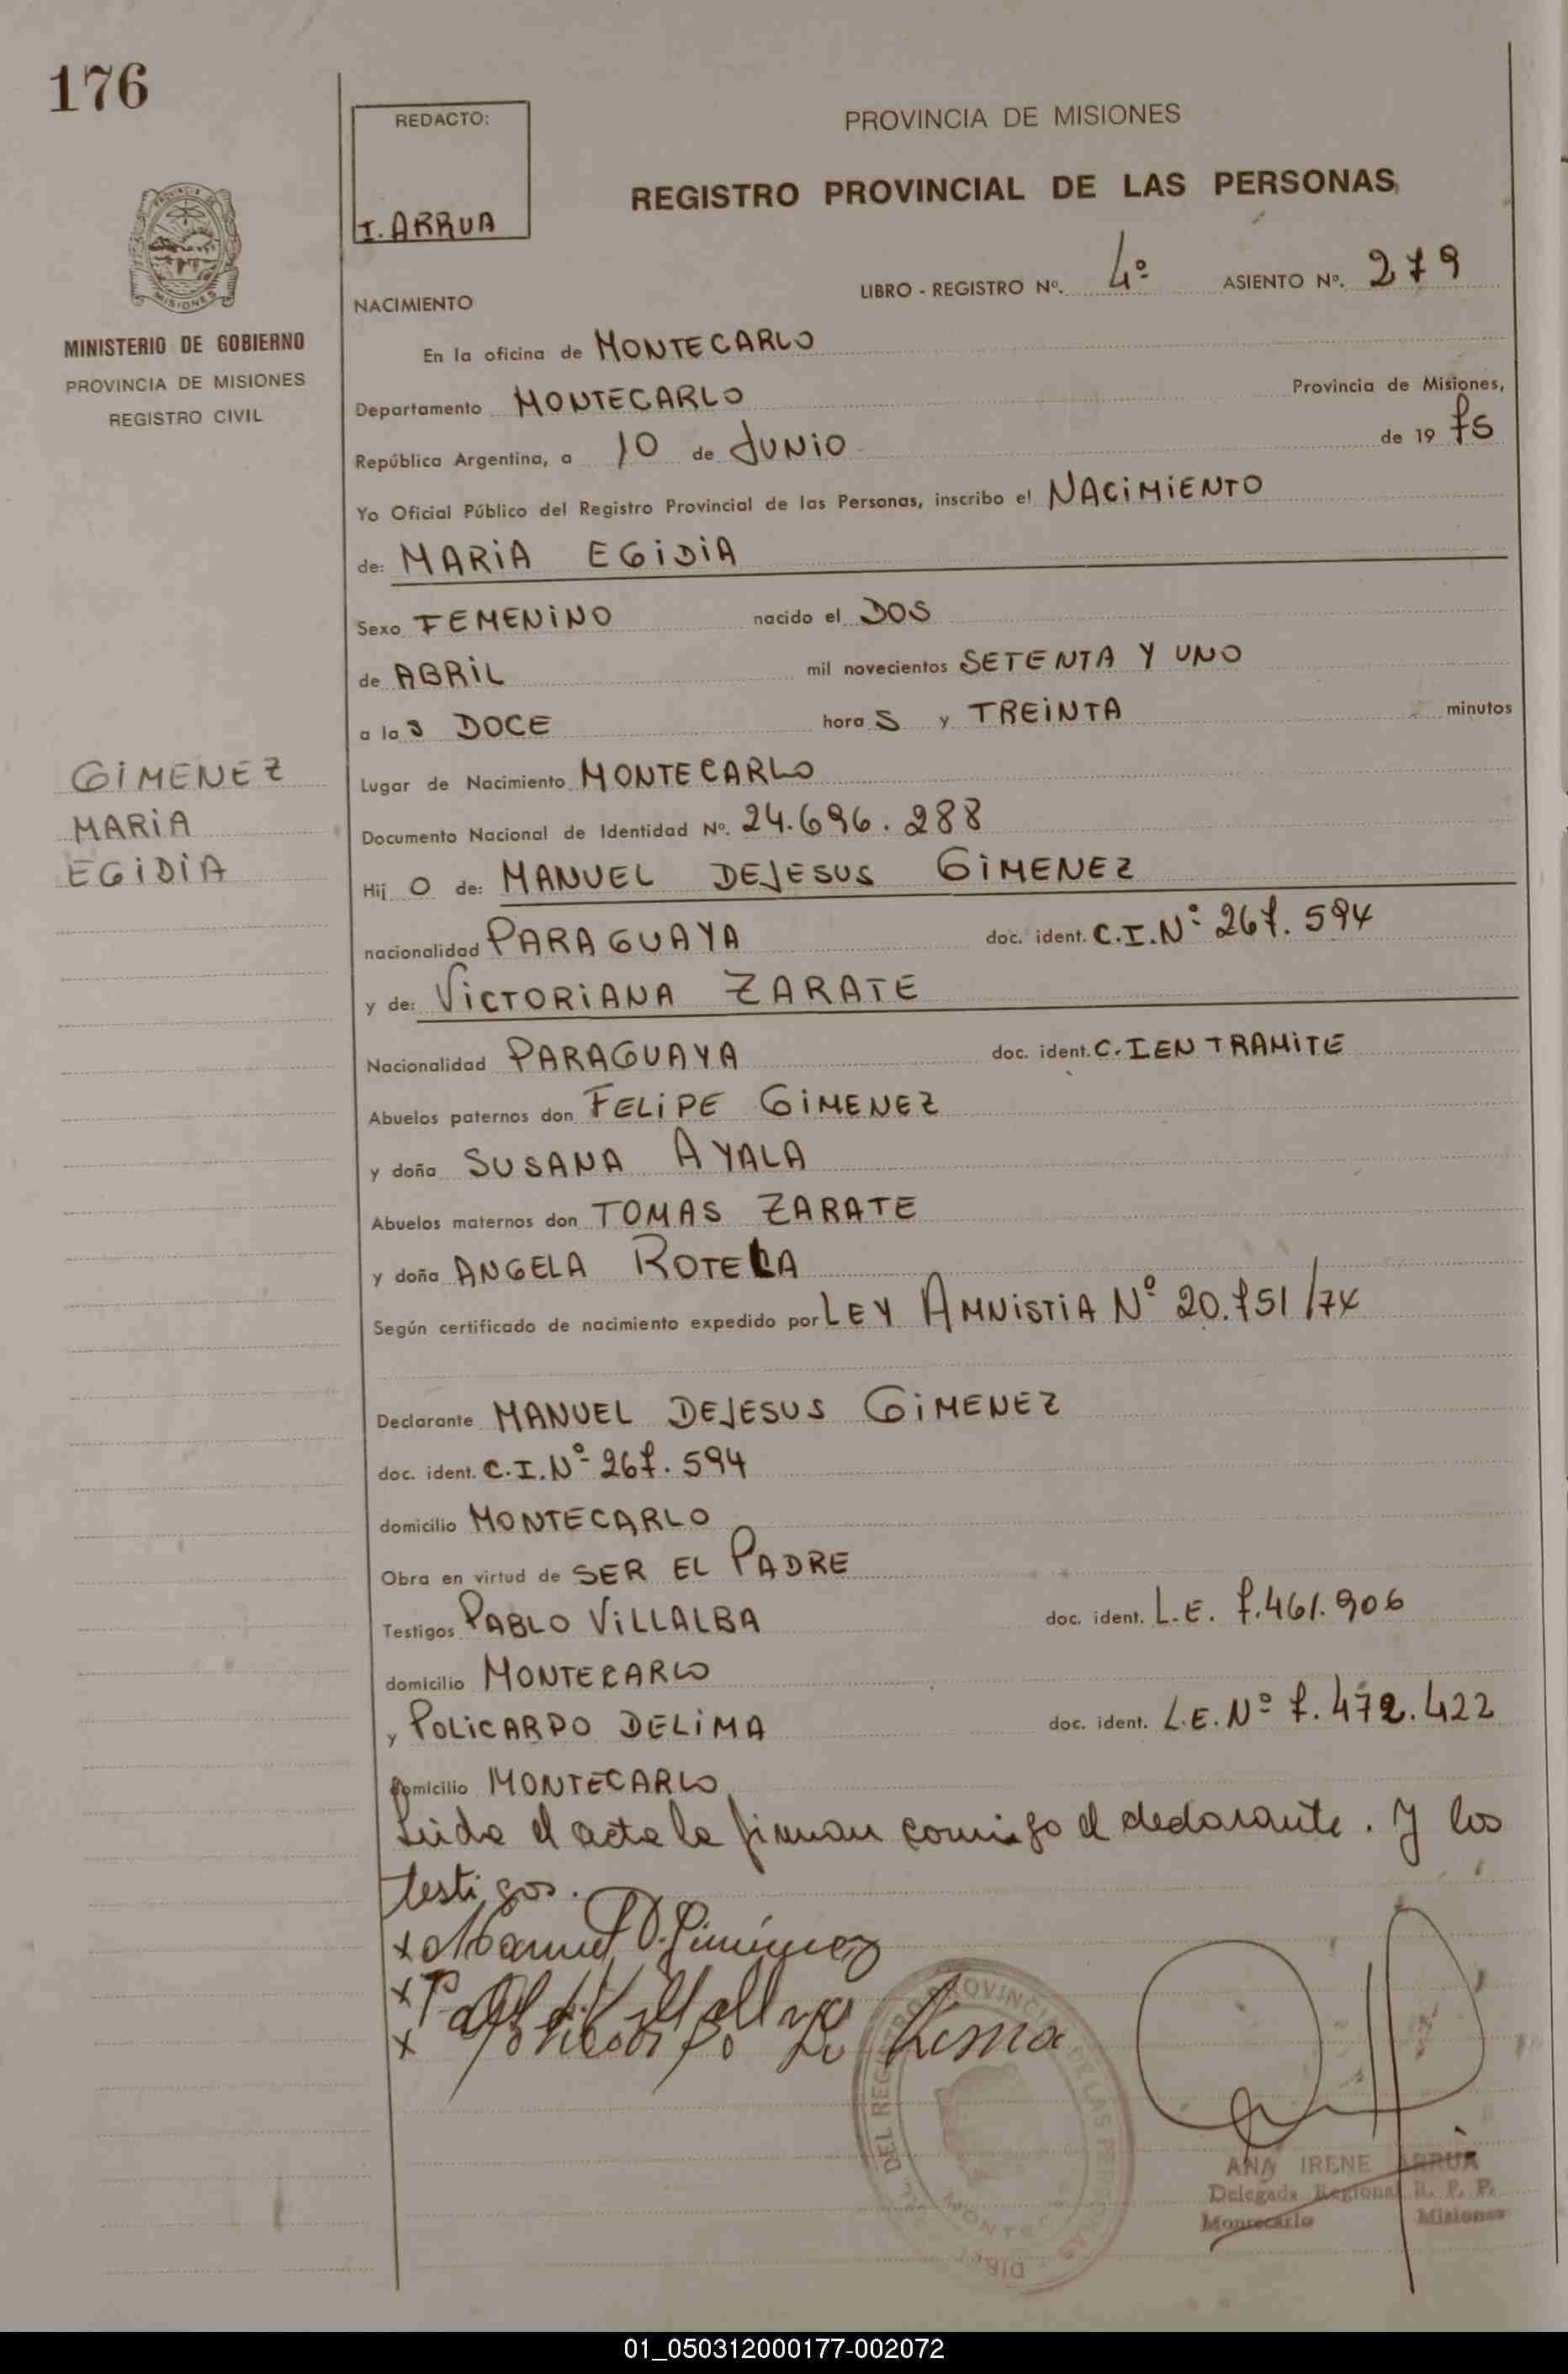 176
REDACTO:
I. ARRUA
PROVINCIA DE MISIONES
REGISTRO PROVINCIAL DE LAS PERSONAS
PROVINCIA
MISIONES
MINISTERIO DE GOBIERNO
PROVINCIA DE MISIONES
REGISTRO CIVIL
LIBRO - REGISTRO Nº. 4º ASIENTO Nº. 279
NACIMIENTO
En la oficina de MONTECARLO
Departamento MONTECARLO Provincia de Misiones,
República Argentina, a 10 de JUNIO de 19 75
Yo Oficial Público del Registro Provincial de las Personas, inscribo el NACIMIENTO
de: MARIA EGIDIA
Sexo FEMENINO nacido el DOS
de ABRIL mil novecientos SETENTA Y UNO
a las DOCE horas y TREINTA minutos
GIMENEZ
MARIA
EGIDIA
Lugar de Nacimiento MONTECARLO
Documento Nacional de Identidad Nº. 24.696.288
Hijo de: MANUEL DEJESUS GIMENEZ
nacionalidad PARAGUAYA doc. ident. C.I.Nº 267.594
y de: VICTORIANA ZARATE
Nacionalidad PARAGUAYA doc. ident. C.I EN TRAMITE
Abuelos paternos don FELIPE GIMENEZ
y doña SUSANA AYALA
Abuelos maternos don TOMAS ZARATE
y doña ANGELA ROTELA
Según certificado de nacimiento expedido por LEY AMNISTIA Nº 20.751/74
Declarante MANUEL DEJESUS GIMENEZ
doc. ident. C.I.Nº 267.594
domicilio MONTECARLO
Obra en virtud de SER EL PADRE
Testigos PABLO VILLALBA doc. ident. L.E. 7.461.906
domicilio MONTECARLO
y POLICARPO DELIMA doc. ident. L.E.Nº 7.472.422
domicilio MONTECARLO
Leida el acta la firman comigo el declarante. Y los
testigos.
x Manuel D. Gimenez
x Pablo Villalba
x Policarpo De Lima
DEL REGISTRO PROVINCIAL DE LAS PERSONAS
ANA IRENE ARRUA
Delegada Regional R. P. P.
Montecarlo Misiones
01_050312000177-002072